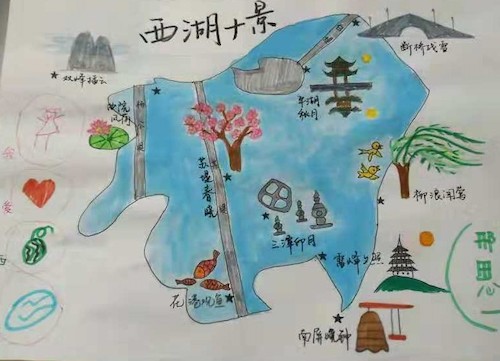 西湖十景
断桥残雪
双峰插云
曲院
风荷
平湖
秋月
苏堤春晓
柳浪闻莺
三潭印月
雷峰夕照
花港观鱼
南屏晚钟
我
爱
西